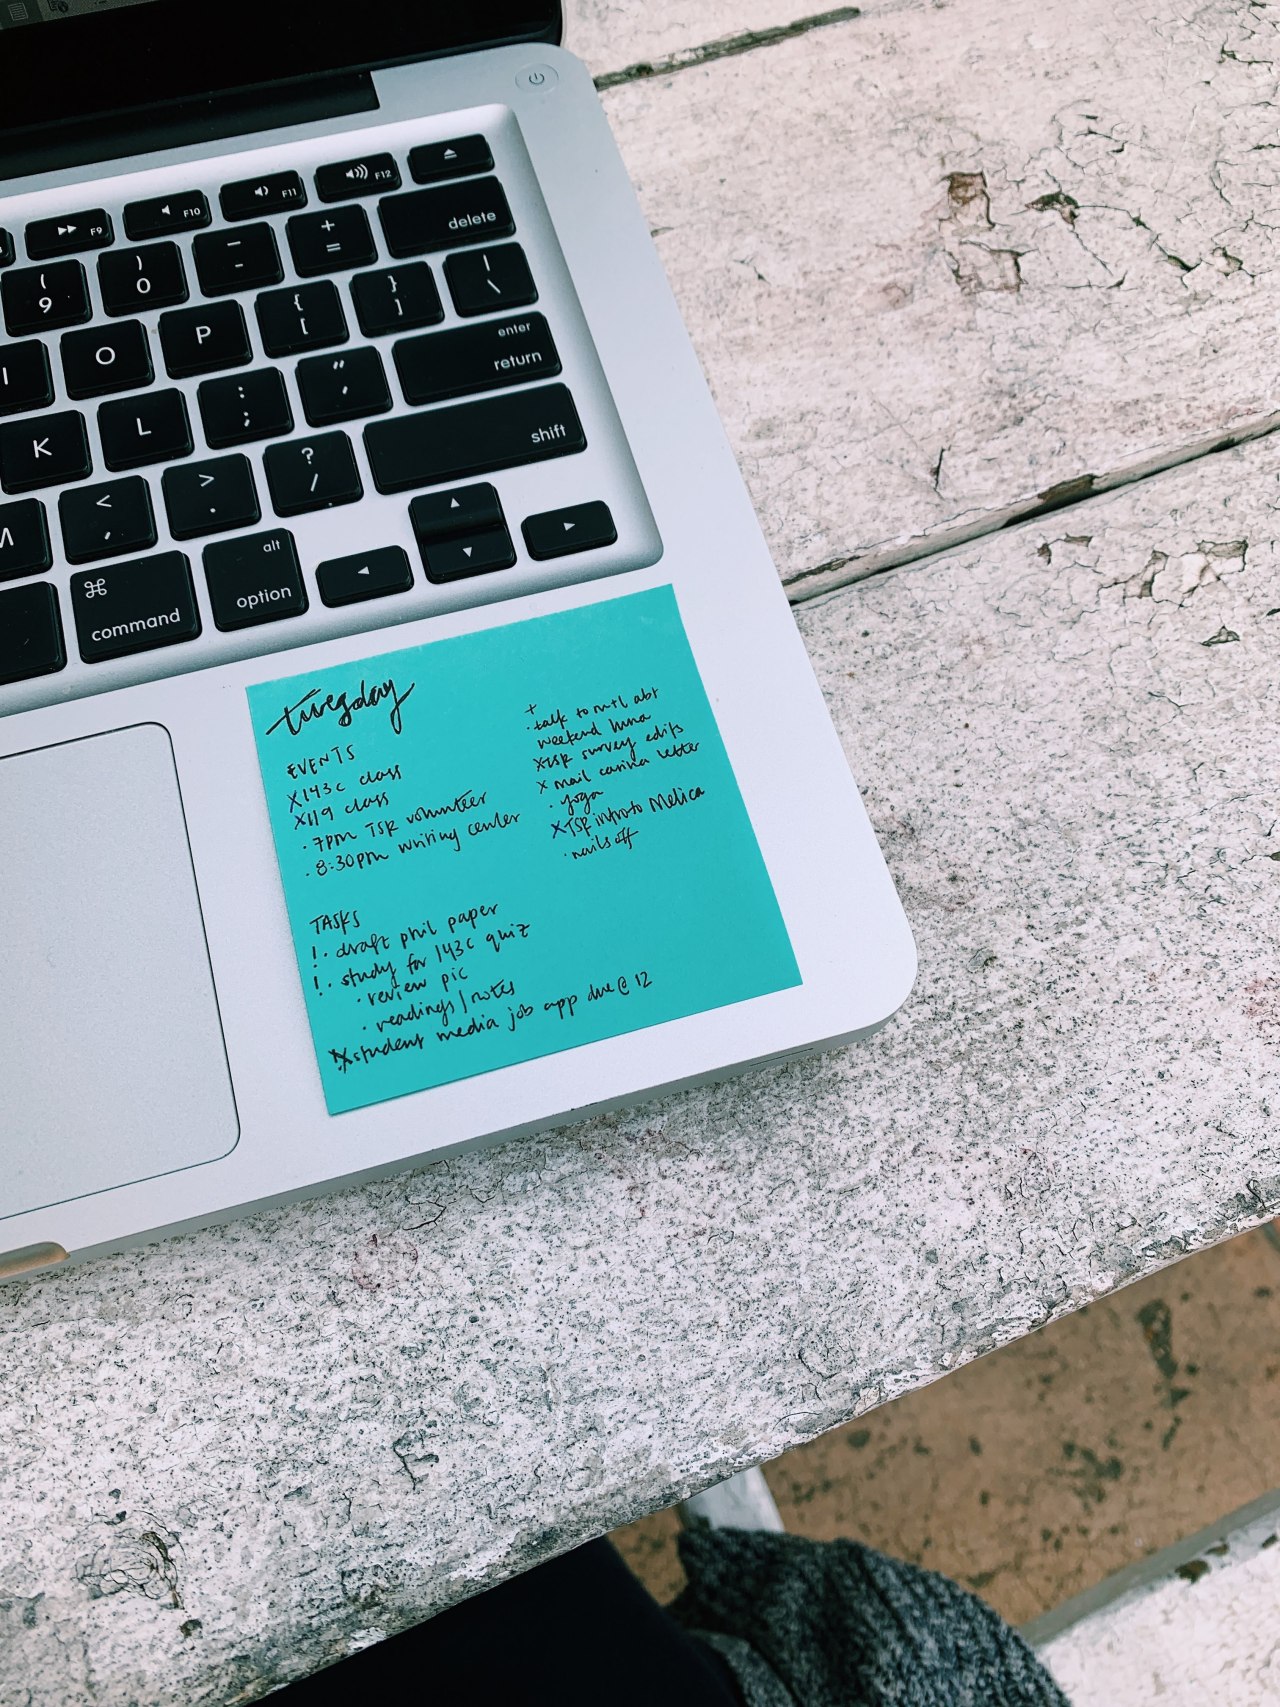 F9
F10
F11
F12
(
9
)
0
_
-
+
=
delete
I
O
P
{
[
}
]
|
\
enter
return
K
L
:
;
"
'
shift
M
<
,
>
.
?
/
⌘
command
alt
option
tuesday
EVENTS
X 143c class
X 119 class
· 7pm TSR volunteer
· 8:30pm writing center
TASKS
! · draft phil paper
! · study for 143c quiz
· review pic
· readings/notes
X student media job app due @ 12
+
· talk to mtl abt
weekend
X TSR survey edits
X mail carina letter
· yoga
X TSR intro to Melica
· nails off